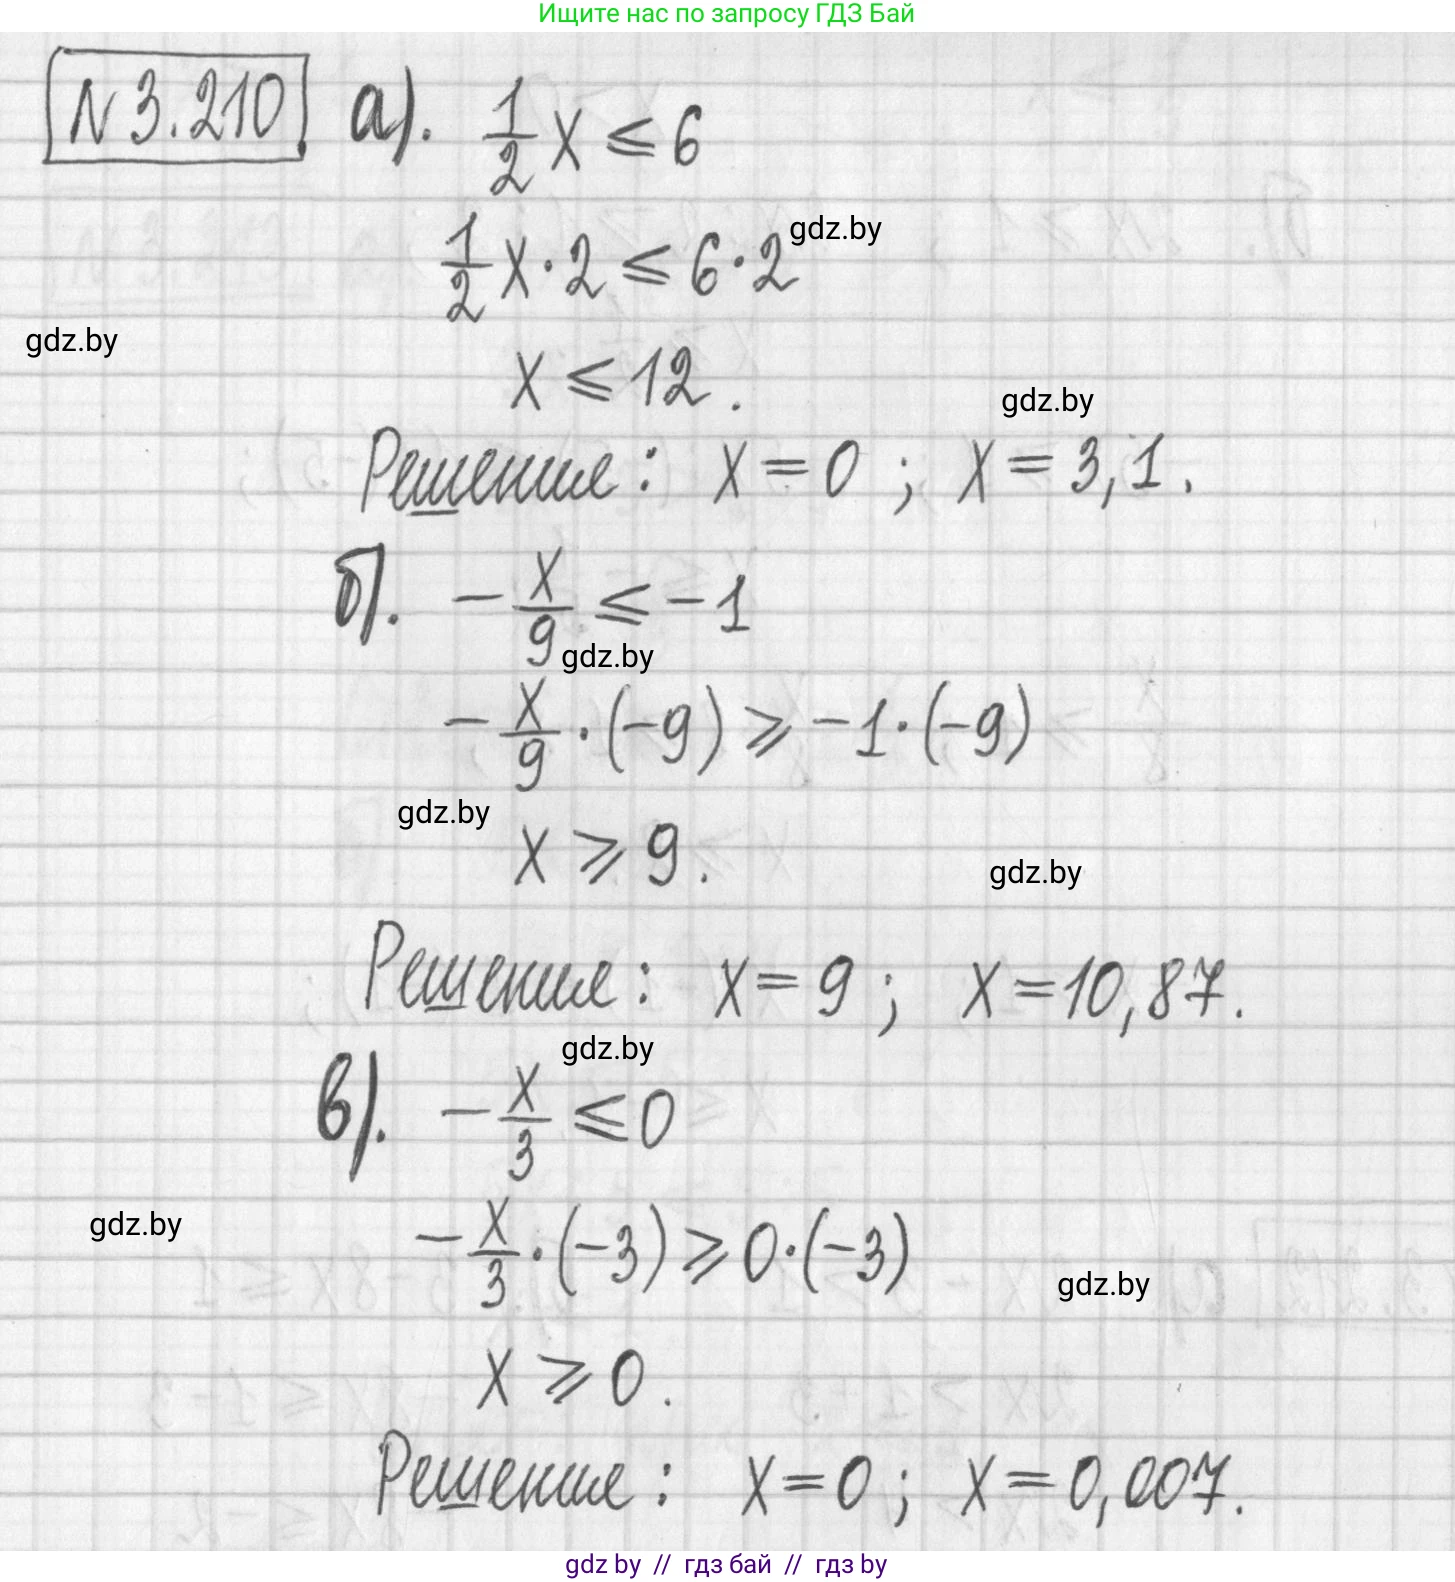 Ищите нас по запросу ГДЗ Бай
N 3.210 а). 1/2 x ⩽ 6
1/2 x · 2 ⩽ 6 · 2
gdz.by
gdz.by
x ⩽ 12.
gdz.by
Решения: x = 0 ; x = 3,1.
б). - x/9 ⩽ -1
gdz.by
- x/9 · (-9) ⩾ -1 · (-9)
gdz.by
x ⩾ 9.
gdz.by
Решения: x = 9 ; x = 10,87.
gdz.by
в). - x/3 ⩽ 0
gdz.by
- x/3 · (-3) ⩾ 0 · (-3)
gdz.by
x ⩾ 0.
Решения: x = 0 ; x = 0,007.
gdz by // гдз бай // гдз by